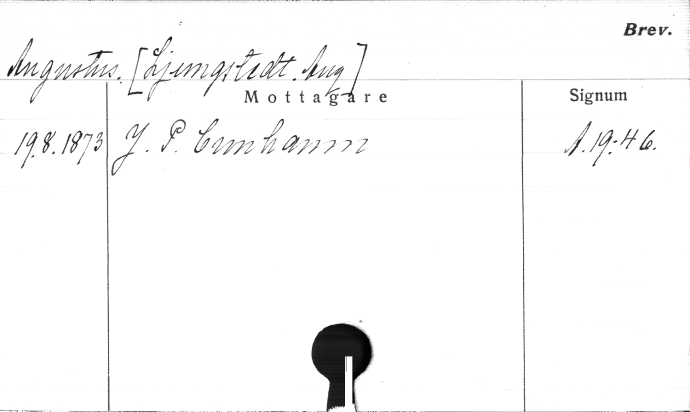 Brev.
Augustus. [Ljungstedt. Aug]
Mottagare Signum
19.8.1873 J. P. Cronhamn A.19:46.